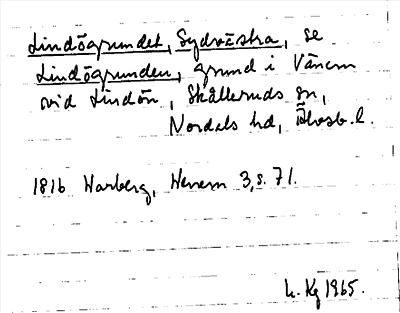 Lindögrundet, Sydvästra, se
Lindögrunden, grund i Vänern
vid Lindön, Skålleruds sn,
Nordals hd, Älvsb. l.
1816 Warberg, Wenern 3, s. 71.
L. Kg 1965.